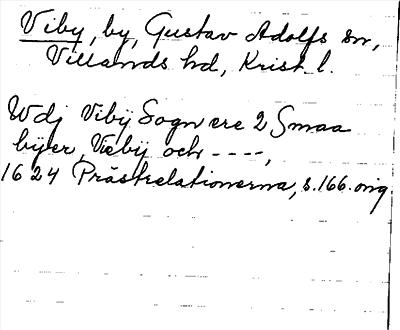 Viby, by, Gustav Adolfs sn,
Villands hd, Krist. l.
Wdj Vibÿ Sogn ere 2 Smaa
bÿer, Viebÿ och ----,
1624 Prästrelationerna, s. 166. orig.